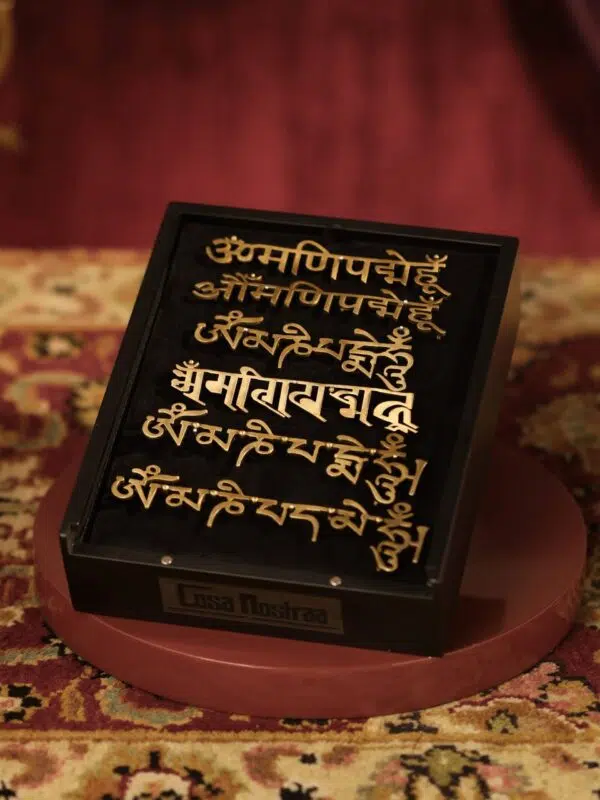 ॐमणिपद्मेहूँ
ओँमणिपद्मेहूँ
ཨོཾ་མ་ཎི་པདྨེ་ཧཱུྃ
ཨོཾ་མ་ཎི་པདྨེ་ཧཱུྃ
ཨོཾ་མ་ཎི་པད་མེ་ཧཱུྃ
Cosa Nostraa